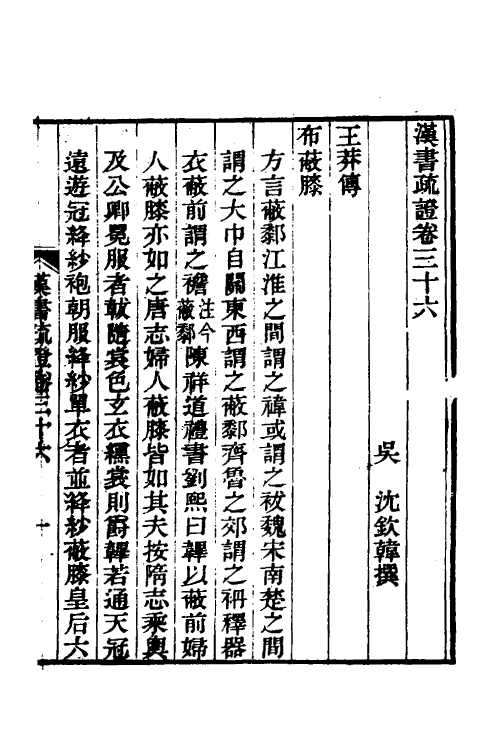 漢書疏證卷三十六
吳 沈欽韓撰
王莽傳
布蔽膝
方言蔽䣛江淮之間謂之褘或謂之祓魏宋南楚之間
謂之大巾自關東西謂之蔽䣛齊魯之郊謂之袡釋器
衣蔽前謂之襜注今蔽䣛陳祥道禮書劉熙曰韠以蔽前婦
人蔽膝亦如之唐志婦人蔽膝皆如其夫按隋志乘輿
及公卿冕服者韍隨裳色玄衣纁裳則爵韠若通天冠
遠遊冠絳紗袍朝服絳紗單衣者並絳紗蔽膝皇后六
漢書疏證卷三十六 一